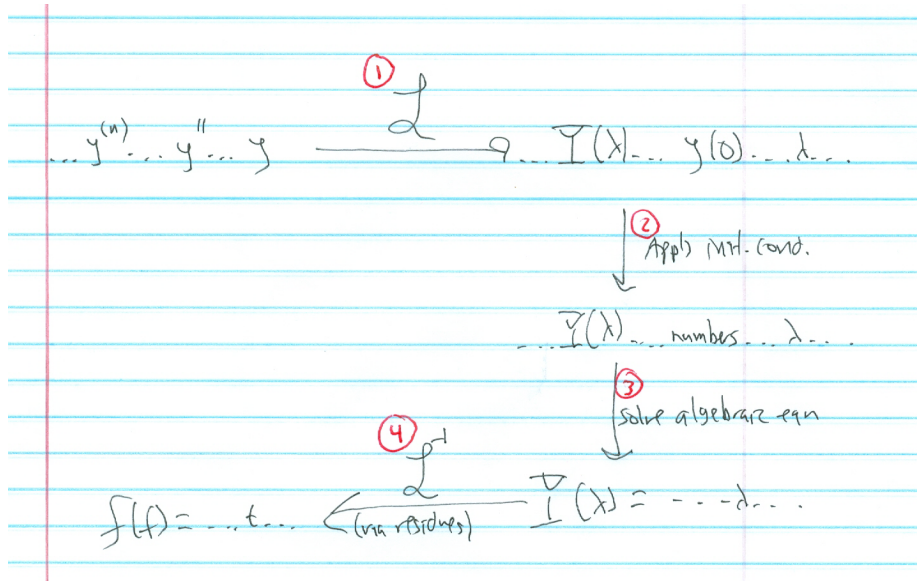 ①
...y⁽ⁿ⁾... y''... y ℒ ... Y(λ)... y(0)... λ...
② Apply init. cond.
... Y(λ)... numbers... λ...
③ solve algebraic eqn
④ ℒ⁻¹
f(t) = ...t... (via residues) Y(λ) = ...λ...